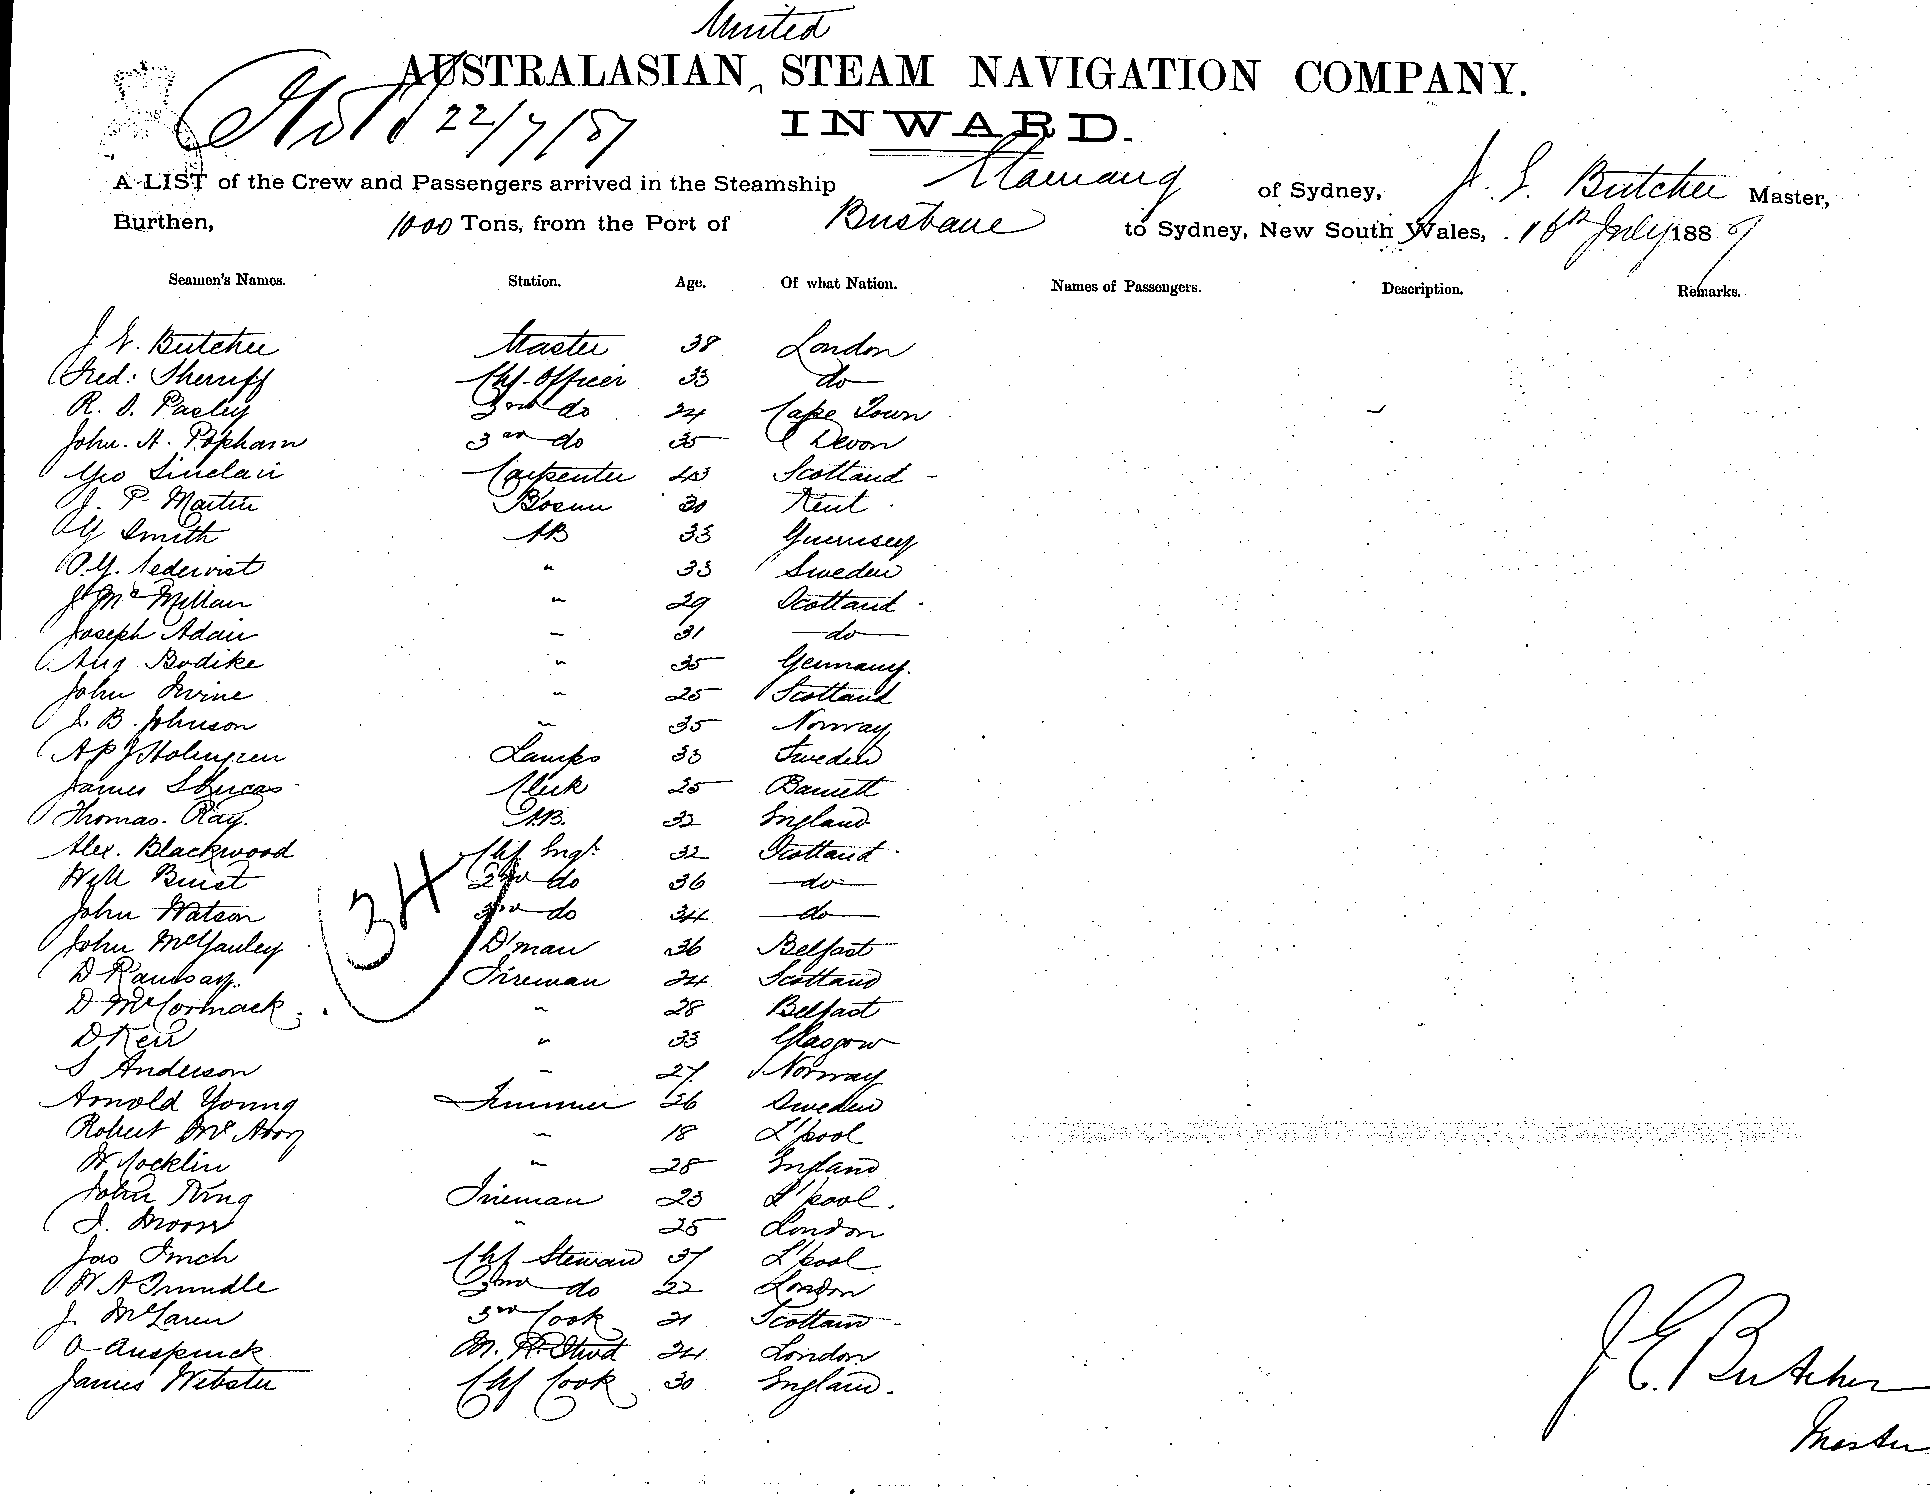 United
AUSTRALASIAN ^ STEAM NAVIGATION COMPANY.
22/7/87
INWARD.
A LIST of the Crew and Passengers arrived in the Steamship of Sydney, J. E. Butcher Master,
Burthen, 1000 Tons, from the Port of Brisbane to Sydney, New South Wales, 16th July 1887
Seamen's Names. Station. Age. Of what Nation. Names of Passengers. Description. Remarks.
J E. Butcher Master 38 London
Fred: Sherriff Chf. Officer 33 do
R. S. Pasley 2nd do 24 Cape Town
John. A. Popham 3rd do 35 Devon
Geo Sinclair Carpenter 43 Scotland
J. P. Martin Bosun 30 Kent
G Smith AB 33 Guernsey
" 33 Sweden
J. McMillan " 29 Scotland
Joseph Adair " 31 do
Aug Bodike " 35 Germany.
John Irvine " 25 Scotland
J. B. Johnson " 35 Norway
A P J Holmgren Lamps 33 Sweden
James S Lucas Clerk 25 Barnett
Thomas. Ray. AB. 33 England
Alex. Blackwood Chf Engr. 32 Scotland
Will Buist 2nd do 36 do
John Watson 3rd do 34 do
34
John McGauley D'man 36 Belfast
D Ramsay. Fireman 24 Scotland
D McCormack " 28 Belfast
D Keir " 33 Glasgow
S Anderson " 27 Norway
Arnold Young Trimmer 26 Sweden
Robert McAvoy " 18 L'pool
W. Cocklin " 28 England
John King Fireman 23 L'pool.
J. Moore " 25 London
Jas Inch Chf Steward 37 L'pool
W A Trundle 2nd do 22 London
J. McLaren 3rd Cook 21 Scotland
M. R. Stwd 24 London
James Webster Chf Cook 30 England.
J E. Butcher
Master